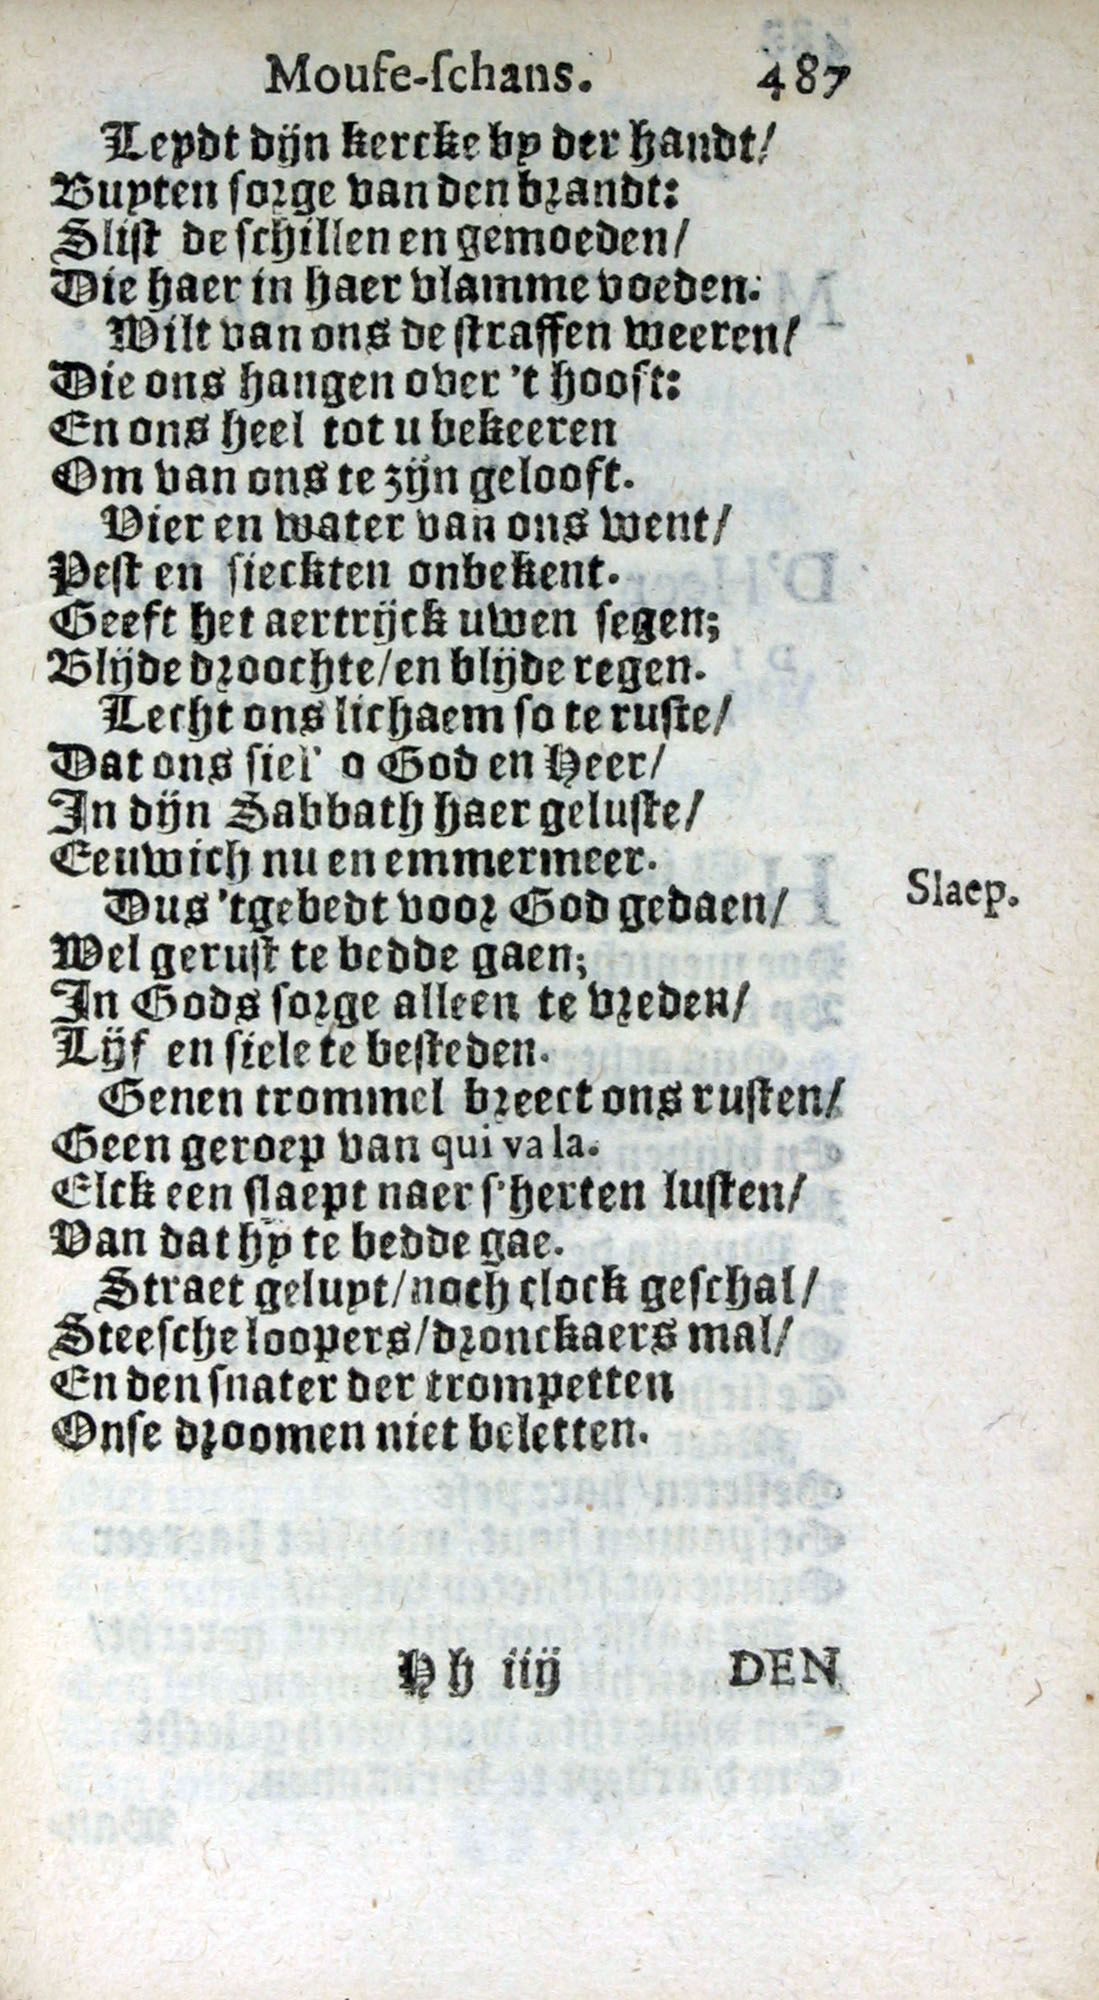 Moufe-schans. 487
Leydt dijn kercke by der handt/
Buyten sorge van den brandt:
Slist de schillen en gemoeden/
Die haer in haer vlamme voeden.
Wilt van ons de straffen weeren/
Die ons hangen over 't hooft:
En ons heel tot u bekeeren
Om van ons te zijn gelooft.
Vier en water van ons went/
Pest en sieckten onbekent.
Geeft het aertrijck uwen segen;
Blijde droochte/ en blijde regen.
Lecht ons lichaem so te ruste/
Dat ons siel' o God en Heer/
In dijn Sabbath haer geluste/
Eeuwich nu en emmermeer.
Dus 'tgebedt voor God gedaen/
Slaep.
Wel gerust te bedde gaen;
In Gods sorge alleen te vreden/
Lijf en siele te besteden.
Genen trommel breect ons rusten/
Geen geroep van qui va la.
Elck een slaept naer s'herten lusten/
Van dat hy te bedde gae.
Straet geluyt/ noch clock geschal/
Steesche loopers/ dronckaers mal/
En den snater der trompetten
Onse droomen niet beletten.
Hh iiij DEN